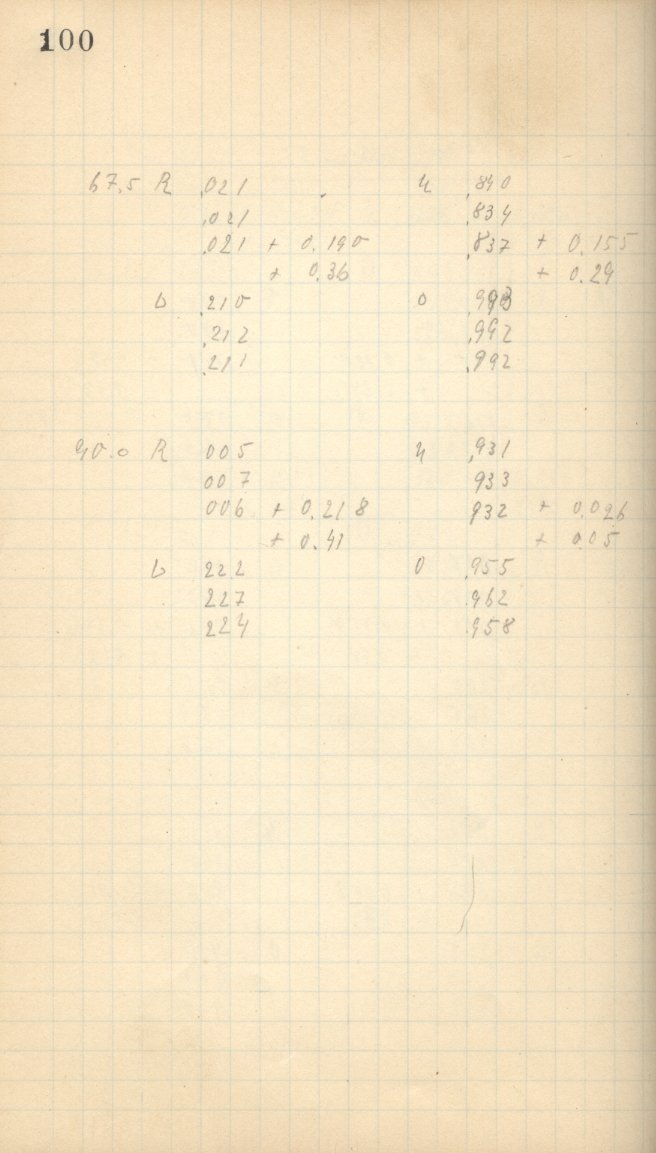 100
67.5 R .021 u .840
.021 .834
.021 + 0.190 .837 + 0.155
+ 0.36 + 0.29
b .210 o .993
.212 .992
.211 .992
90.0 R 005 u .931
007 933
006 + 0.218 932 + 0.026
+ 0.41 + 0.05
b 222 o .955
227 .962
224 .958